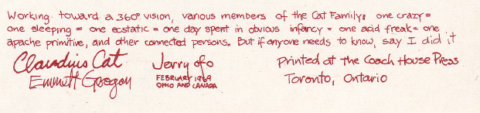 Working toward a 360° vision, various members of the Cat Family: one crazy=
one sleeping = one ecstatic = one day spent in obvious infancy = one acid freak= one
apache primitive, and other connected persons. But if anyone needs to know, say I did it
Claudius Cat
Emmett Grogan
Jerry ofo
FEBRUARY 1969
OHIO AND CANADA
Printed at the Coach House Press
Toronto, Ontario